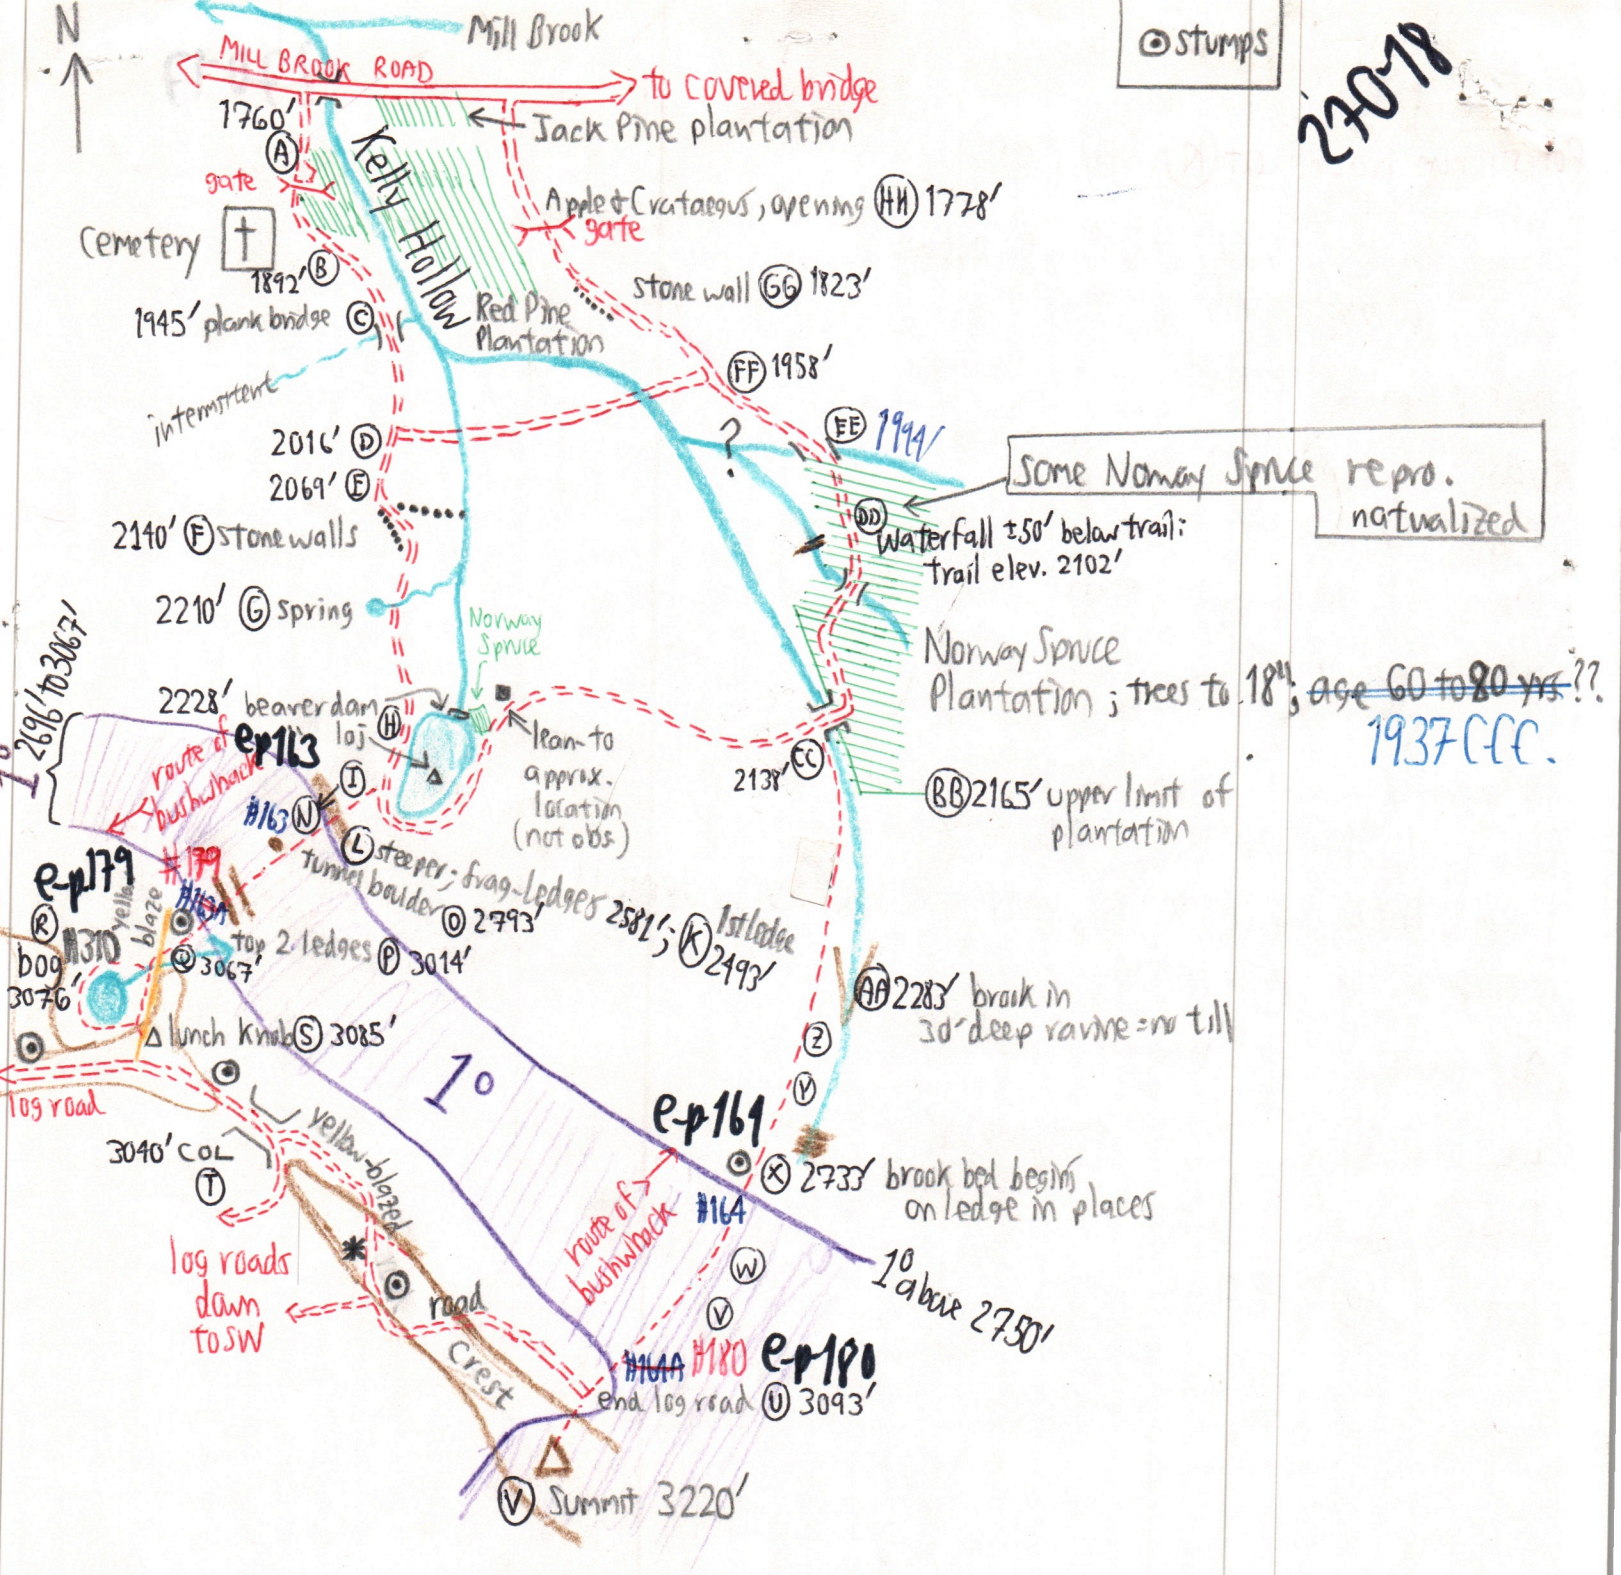 N
Mill Brook
⊙ stumps
270-18
MILL BROOK ROAD
to covered bridge
1760'
A
Jack Pine plantation
Kelly Hollow
gate
Apple & Crataegus, opening HH 1778'
gate
Cemetery
1892' B
stone wall GG 1823'
1945' plank bridge C
Red Pine
Plantation
intermittent
FF 1958'
2016' D
?
EE 1994'
some Norway Spruce repro.
natualized
2069' E
2140' F stone walls
DD
waterfall ±50' below trail:
trail elev. 2102'
2210' G spring
Norway
Spruce
Norway Spruce
Plantation; trees to 18"; age 60 to 80 yrs ??
1937 CCC.
1° 2696' to 3067'
2228' beaver dam H
loj
lean-to
approx.
location
(not obs.)
CC
2138'
BB 2165' upper limit of
plantation
route of
bushwhack
e-p163
I
#163 N
L steeper; frag-ledges 2581'; K 1st ledge
2493'
tunnel boulder O 2793'
e-p179
#179
#163A
yellow
blaze
R
#310
bog
3076'
Q 3067'
top 2 ledges P 3014'
AA 2283' brook in
30' deep ravine = no till
lunch knob S 3085'
Z
Y
1°
log road
e-p164
3040' COL
T
yellow-blazed
road
X 2733' brook bed begins
on ledge in places
#164
route of
bushwhack
W
V
1° above 2750'
log roads
down
to SW
Crest
#164A #180 e-p180
end log road U 3093'
V Summit 3220'